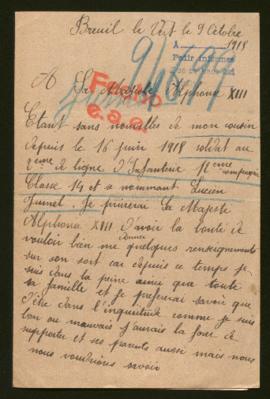 Breuil le Vert le 9 Octobre
1918
A
Pedir informes
A Sa Majeste Alphonse XIII
Etant sans nouvelles de mon cousin
depuis le 16 juin 1918 soldat au
2eme de ligne d'Infanterie 11eme compagnie
Classe 14 et se nommant Lucien
Je prierai Sa Majeste
Alphonse XIII d'avoir la bonté de
vouloir bien me donner quelques renseignements
sur son sort car depuis ce temps je
suis dans la peine ainsi que toute
sa famille et je prefererai savoir que
d'être dans l'inquietude comme je suis
bon ou mauvais j'aurais la force de
supporter et ses parents aussi mais nous
nous voudrions savoir